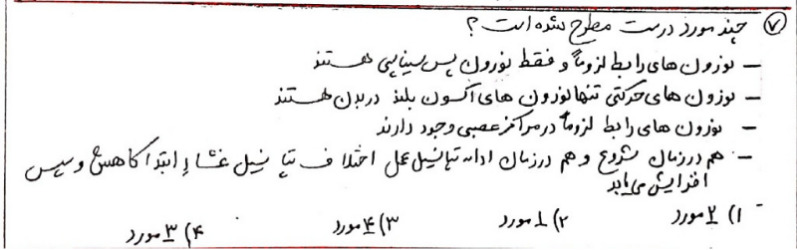 ۷) چند مورد درست مطرح شده است؟
– نورون های رابط لزوماً و فقط نورون پس سیناپسی هستند
– نورون های حرکتی تنها نورون های آکسون بلند در بدن هستند
– نورون های رابط لزوماً در مراکز عصبی وجود دارند
– هم در زمان شروع و هم در زمان ادامه پتانسیل عمل اختلاف پتانسیل غشاء ابتدا کاهش و سپس
افزایش می یابد
۱) ۲ مورد ۲) ۱ مورد ۳) ۴ مورد ۴) ۳ مورد